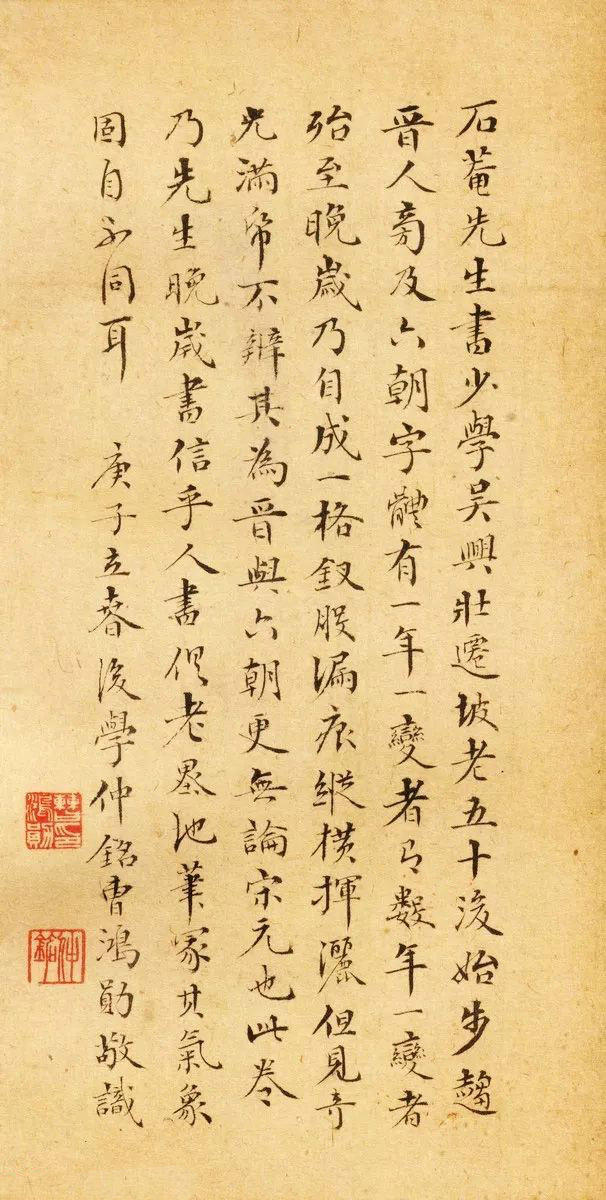 石菴先生書少學吳興壯遷坡老五十後始步趨
晋人旁及六朝字體有一年一變者有數年一變者
殆至晚歲乃自成一格釵股漏痕縱橫揮灑但見奇
光滿帋不辨其為晋與六朝更無論宋元也此卷
乃先生晚歲書信乎人書俱老墨池筆冢其氣象
固自不同耳 庚子立春後學仲銘曹鴻勛敬識
曹鴻勛印
仲銘